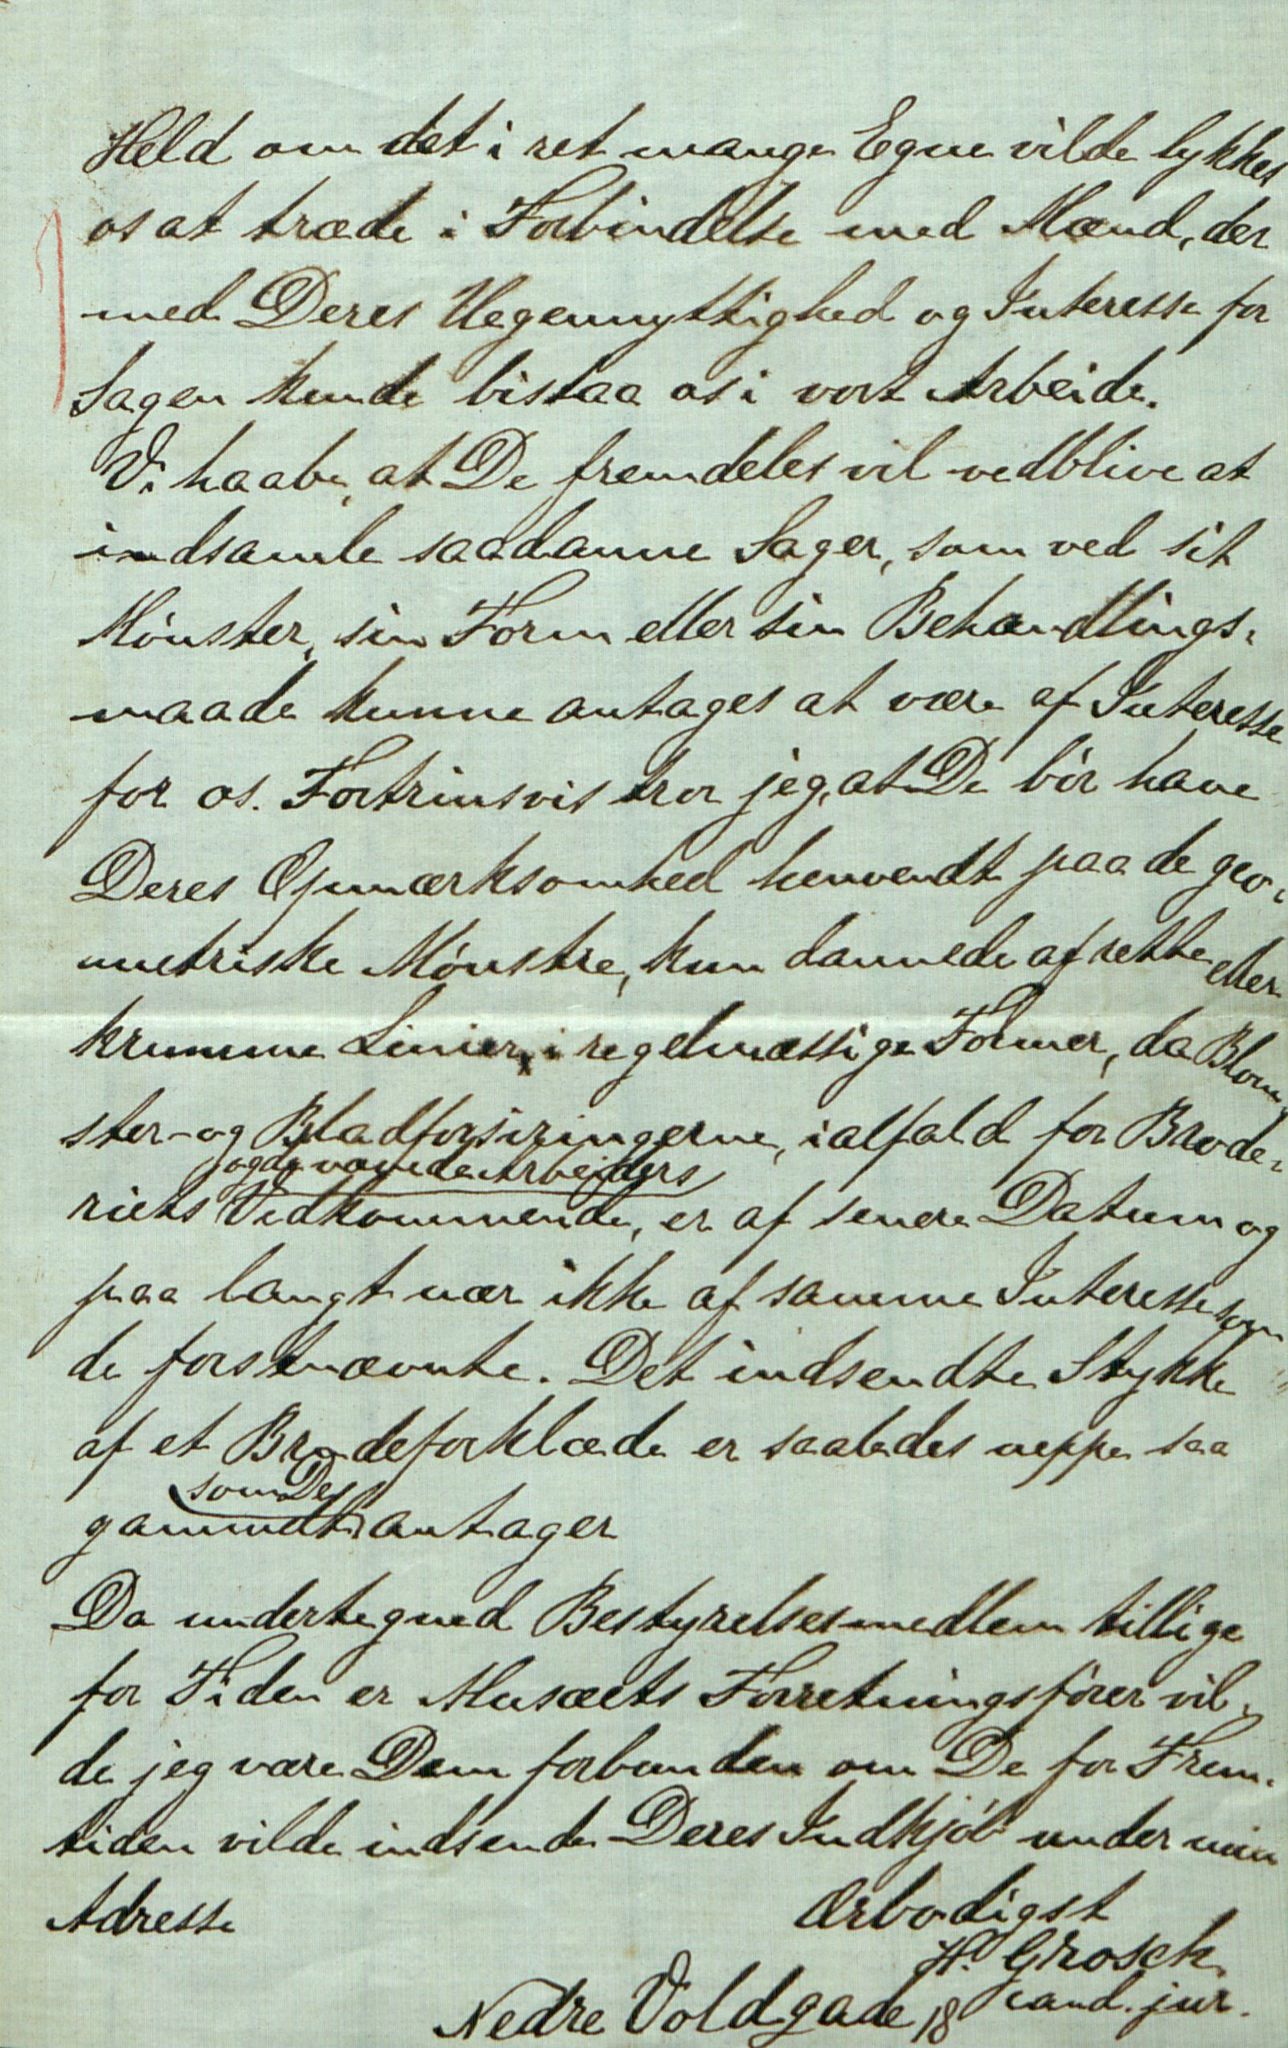 Held om det i ret mange Egne vilde lykkes
os at træde i Forbindelse med Mænd, der
med Deres Uegennyttighed og Interesse for
Sagen kunde bistaa os i vort Arbeide.
Vi haabe, at De fremdeles vil vedblive at
indsamle saadanne Sager, som ved sit
Mönster, sin Form eller sin Behandlings-
maade kunne antages at være af Interesse
for os. Fortrinsvis tror jeg, at De bör have
Deres Opmærksomhed henvendt paa de geo-
metriske Mönstre, kun dannede af rette eller
krumme Linier, i regelmæssige Former, da Blom-
ster- og Bladforsiringerne, ialfald for Brode-
og de vævede Arbeiders
riets Vedkommende, er af senere Datum og
paa langt nær ikke af samme Interesse som
de forstnævnte. Det indsendte Stykke
af et Brudeforklæde er saaledes neppe saa
som De
gammelt antager
Da undertegned Bestyrelsesmedlem tillige
for Tiden er Musæets Forretningsförer vil-
de jeg være Dem forbunden om De for Frem-
tiden vilde indsende Deres Indkjöb under min
Adresse
Ærbødigst
H. Grosch
cand. jur.
Nedre Voldgade 18